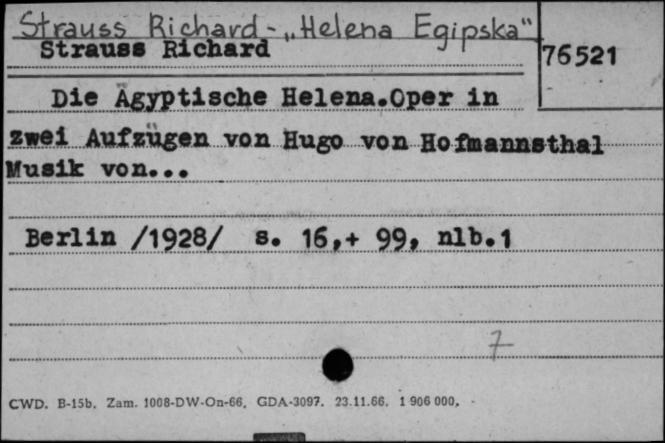 Strauss Richard - „Helena Egipska"
Strauss Richard
76521
Die Ägyptische Helena.Oper in
zwei Aufzügen von Hugo von Hofmannsthal
Musik von...
Berlin /1928/ s. 16,+ 99, nlb.1
7
CWD. B-15b. Zam. 1008-DW-On-66. GDA-3097. 23.11.66. 1 906 000.